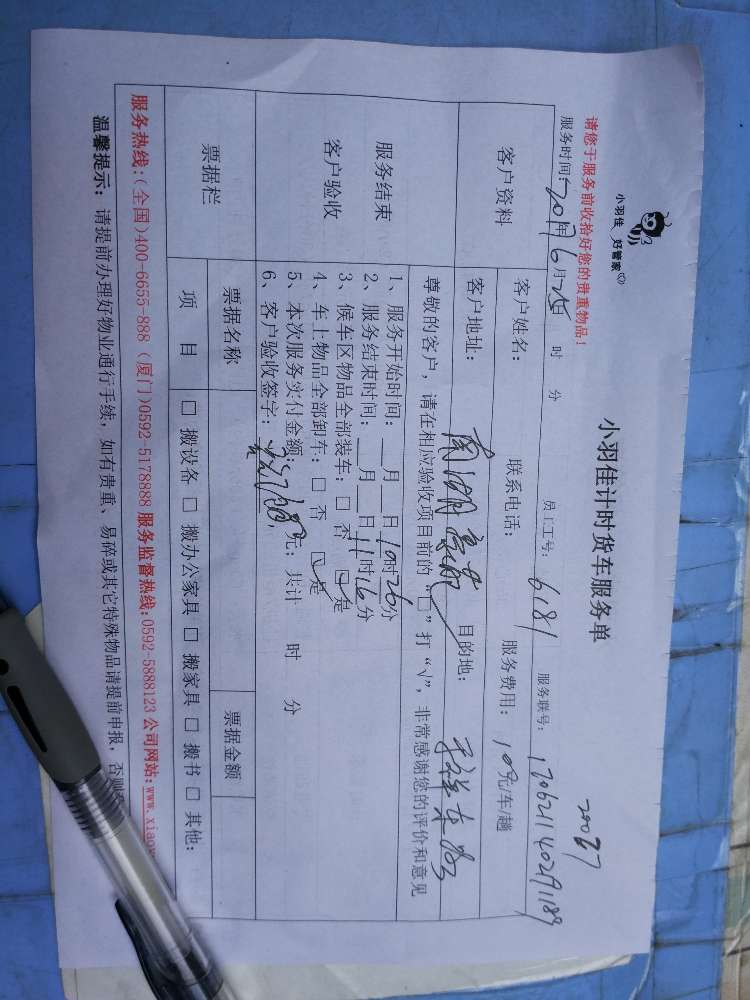 小羽佳 好管家
小羽佳计时货车服务单
请您于服务前收拾好您的贵重物品!
20037
服务时间: 2017年6月25日 时 分 员工工号: 6181 服务联号: 170621140291189
客户资料 客户姓名: 联系电话: 服务费用: 元/车/趟
客户地址: 目的地:
尊敬的客户,请在相应验收项目前的“□”打“√”,非常感谢您的评价和意见
服务结束
客户验收
1、服务开始时间: __月__日10时26分
2、服务结束时间: __月__日11时16分
3、候车区物品全部装车: □ 否 □ 是
4、车上物品全部卸车: □ 否 □ 是
5、本次服务实付金额: 元; 共计 时 分
6、客户验收签字:
票据栏 票据名称 票据金额
项 目 □ 搬设备 □ 搬办公家具 □ 搬家具 □ 搬书 □ 其他:
服务热线:(全国)400-6655-888 (厦门)0592-5178888 服务监督热线:0592-5888123 公司网站:www.xiaoy
温馨提示: 请提前办理好物业通行手续, 如有贵重、易碎或其它特殊物品请提前申报, 否则